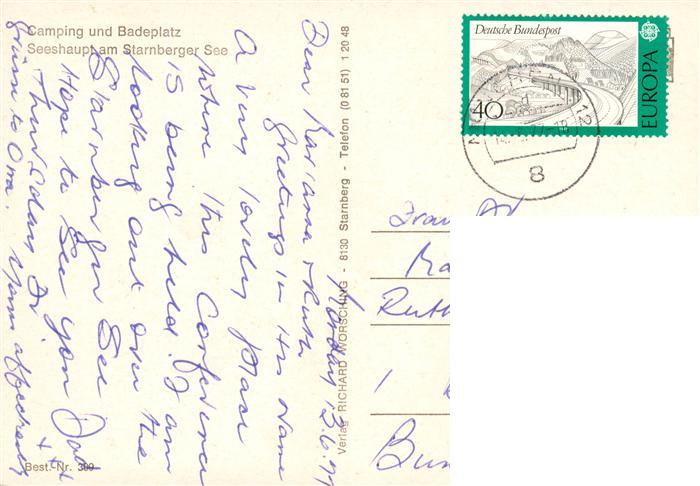 Camping und Badeplatz
Seeshaupt am Starnberger See
Monday 13.6.77
Dear Marianna + Ruth
Greetings in the Name
A very lovely place
where this Conference
is being held. I am
looking out over the
Starnberger See
Hope to see you
Thursday
Grüsse to Oma. Yours affectionately
Best.-Nr. 309
Verlag RICHARD WÖRSCHING - 8130 Starnberg - Telefon (0 81 51) 1 20 48
Deutsche Bundespost
40
EUROPA
12
8
Frau
Ruth